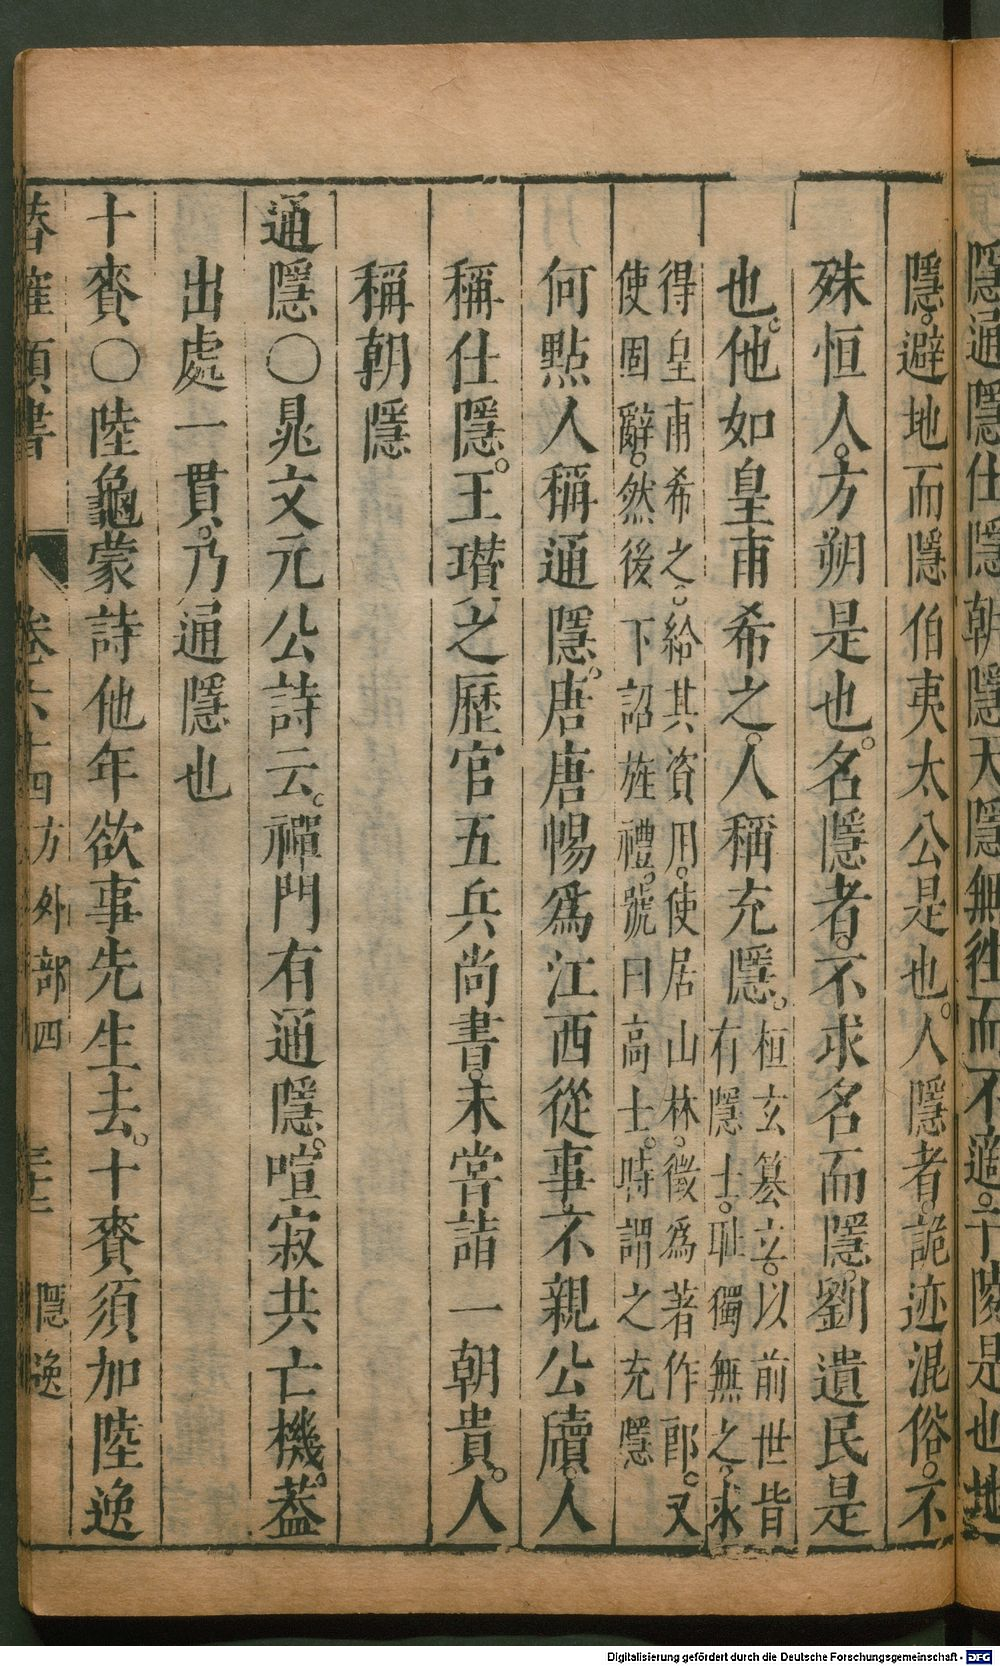 隱通隱仕隱朝隱天隱無往而不適。子陵是也地
隱。避地而隱伯夷太公是也。人隱者。詭迹混俗。不
殊恒人。方朔是也。名隱者。不求名而隱。劉遺民是
也。他如皇甫希之。人稱充隱。桓玄篡立。以前世皆有隱士。耻獨無之。求
得皇甫希之。給其資用。使居山林。徵爲著作郎。又
使固辭。然後下詔旌禮。號曰高士。時謂之充隱
何點人稱通隱。唐唐暢爲江西從事。不親公牘。人
稱仕隱。王瓚之歷官五兵尚書。未嘗詣一朝貴。人
稱朝隱
通隱○晁文元公詩云。禪門有通隱。喧寂共亡機。蓋
出處一貫。乃通隱也
十賚○陸龜蒙詩他年欲事先生去。十賚須加陸逸
類書 卷六十四方外部四 隱逸
Digitalisierung gefördert durch die Deutsche Forschungsgemeinschaft - DFG